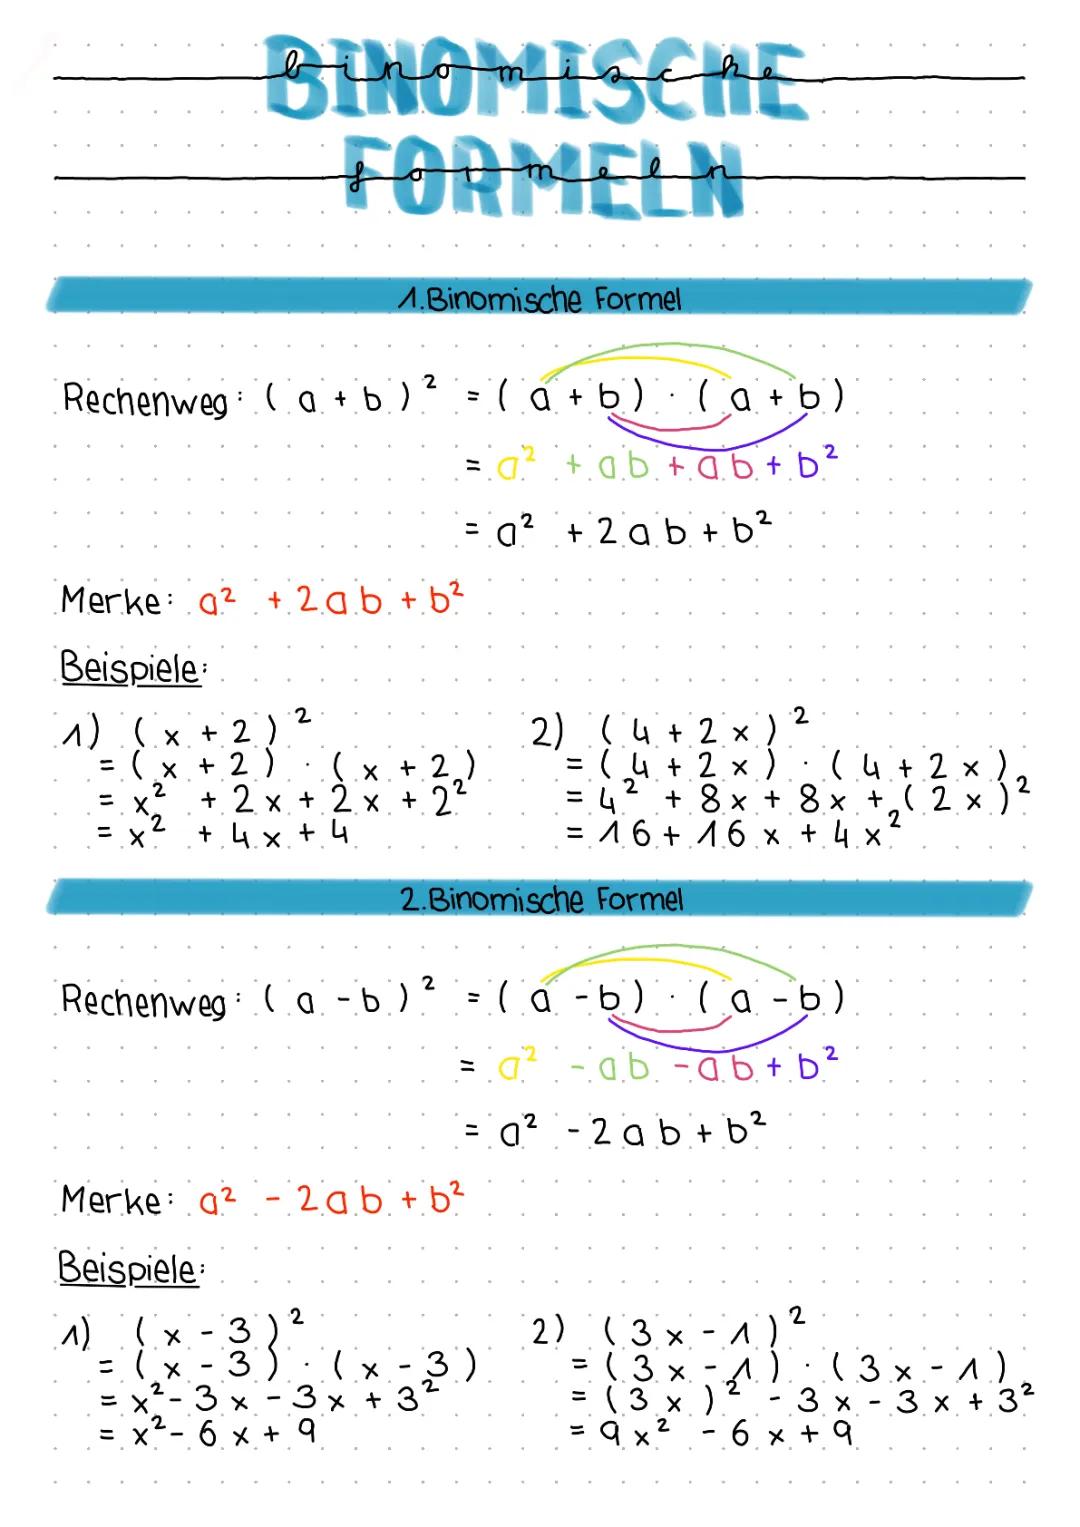 BINOMISCHE
binomische
FORMELN
formeln
1. Binomische Formel
Rechenweg: (a + b)² = (a + b) · (a + b)
= a² + ab + ab + b²
= a² + 2ab + b²
Merke: a² + 2ab + b²
Beispiele:
1) (x + 2)²
= (x + 2) · (x + 2)
= x² + 2x + 2x + 2²
= x² + 4x + 4
2) (4 + 2x)²
= (4 + 2x) · (4 + 2x)
= 4² + 8x + 8x + (2x)²
= 16 + 16x + 4x²
2. Binomische Formel
Rechenweg: (a - b)² = (a - b) · (a - b)
= a² - ab - ab + b²
= a² - 2ab + b²
Merke: a² - 2ab + b²
Beispiele:
1) (x - 3)²
= (x - 3) · (x - 3)
= x² - 3x - 3x + 3²
= x² - 6x + 9
2) (3x - 1)²
= (3x - 1) · (3x - 1)
= (3x)² - 3x - 3x + 3²
= 9x² - 6x + 9